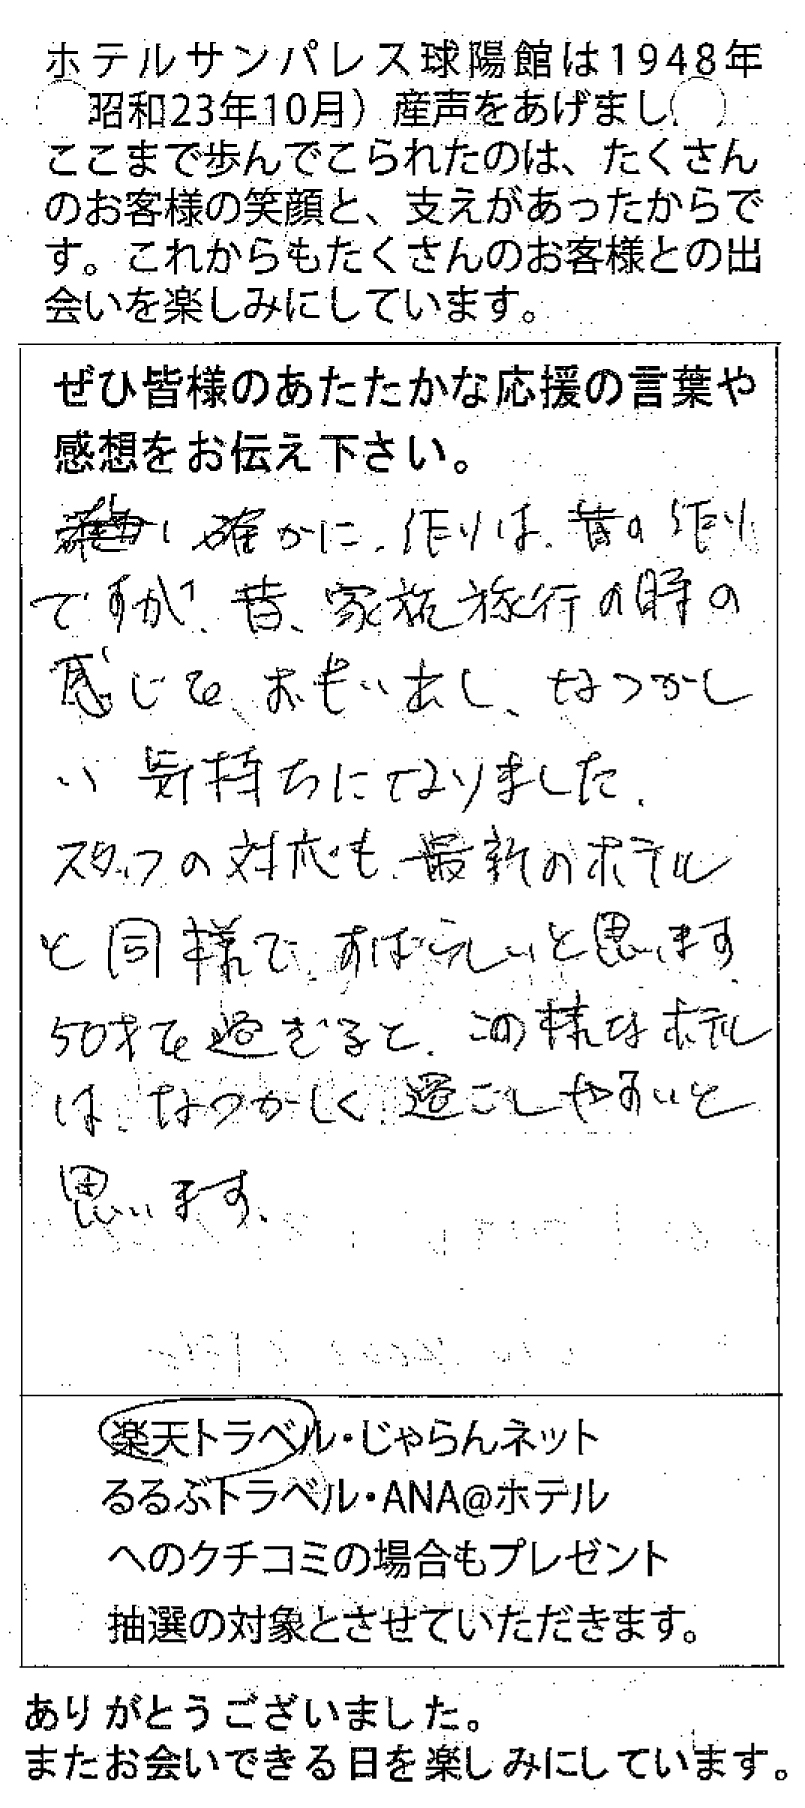 ホテルサンパレス球陽館は1948年
昭和23年10月）産声をあげまし
ここまで歩んでこられたのは、たくさん
のお客様の笑顔と、支えがあったからで
す。これからもたくさんのお客様との出
会いを楽しみにしています。
ぜひ皆様のあたたかな応援の言葉や
感想をお伝え下さい。
確かに、作りは、昔の作り
ですが、昔、家族旅行の時の
感じを、おもい出し、なつかし
い気持ちになりました。
スタッフの対応も、最新のホテル
と同様で、すばらしいと思います。
50才を過ぎると、この様なホテル
は、なつかしく過ごしやすいと
思います。
楽天トラベル・じゃらんネット
るるぶトラベル・ANA@ホテル
へのクチコミの場合もプレゼント
抽選の対象とさせていただきます。
ありがとうございました。
またお会いできる日を楽しみにしています。